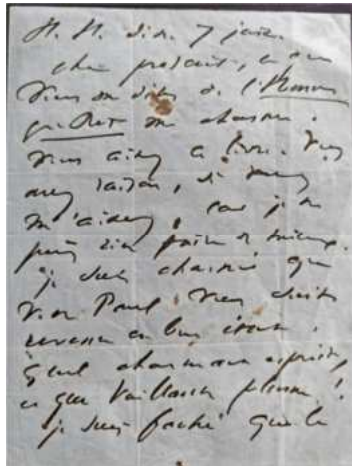 H. H. dim. 7 janv.
cher proscrit, ce que
vous me dites de l'Homme
qui Rit me charme.
vous aimez ce livre. Vous
avez raison, si vous
m'aimez, car je ne
puis rien faire de mieux.
je suis charmé que
Paul vous soit
revenu en bon
quel charmant esprit,
et quelle vaillante plume!
je suis fâché que le